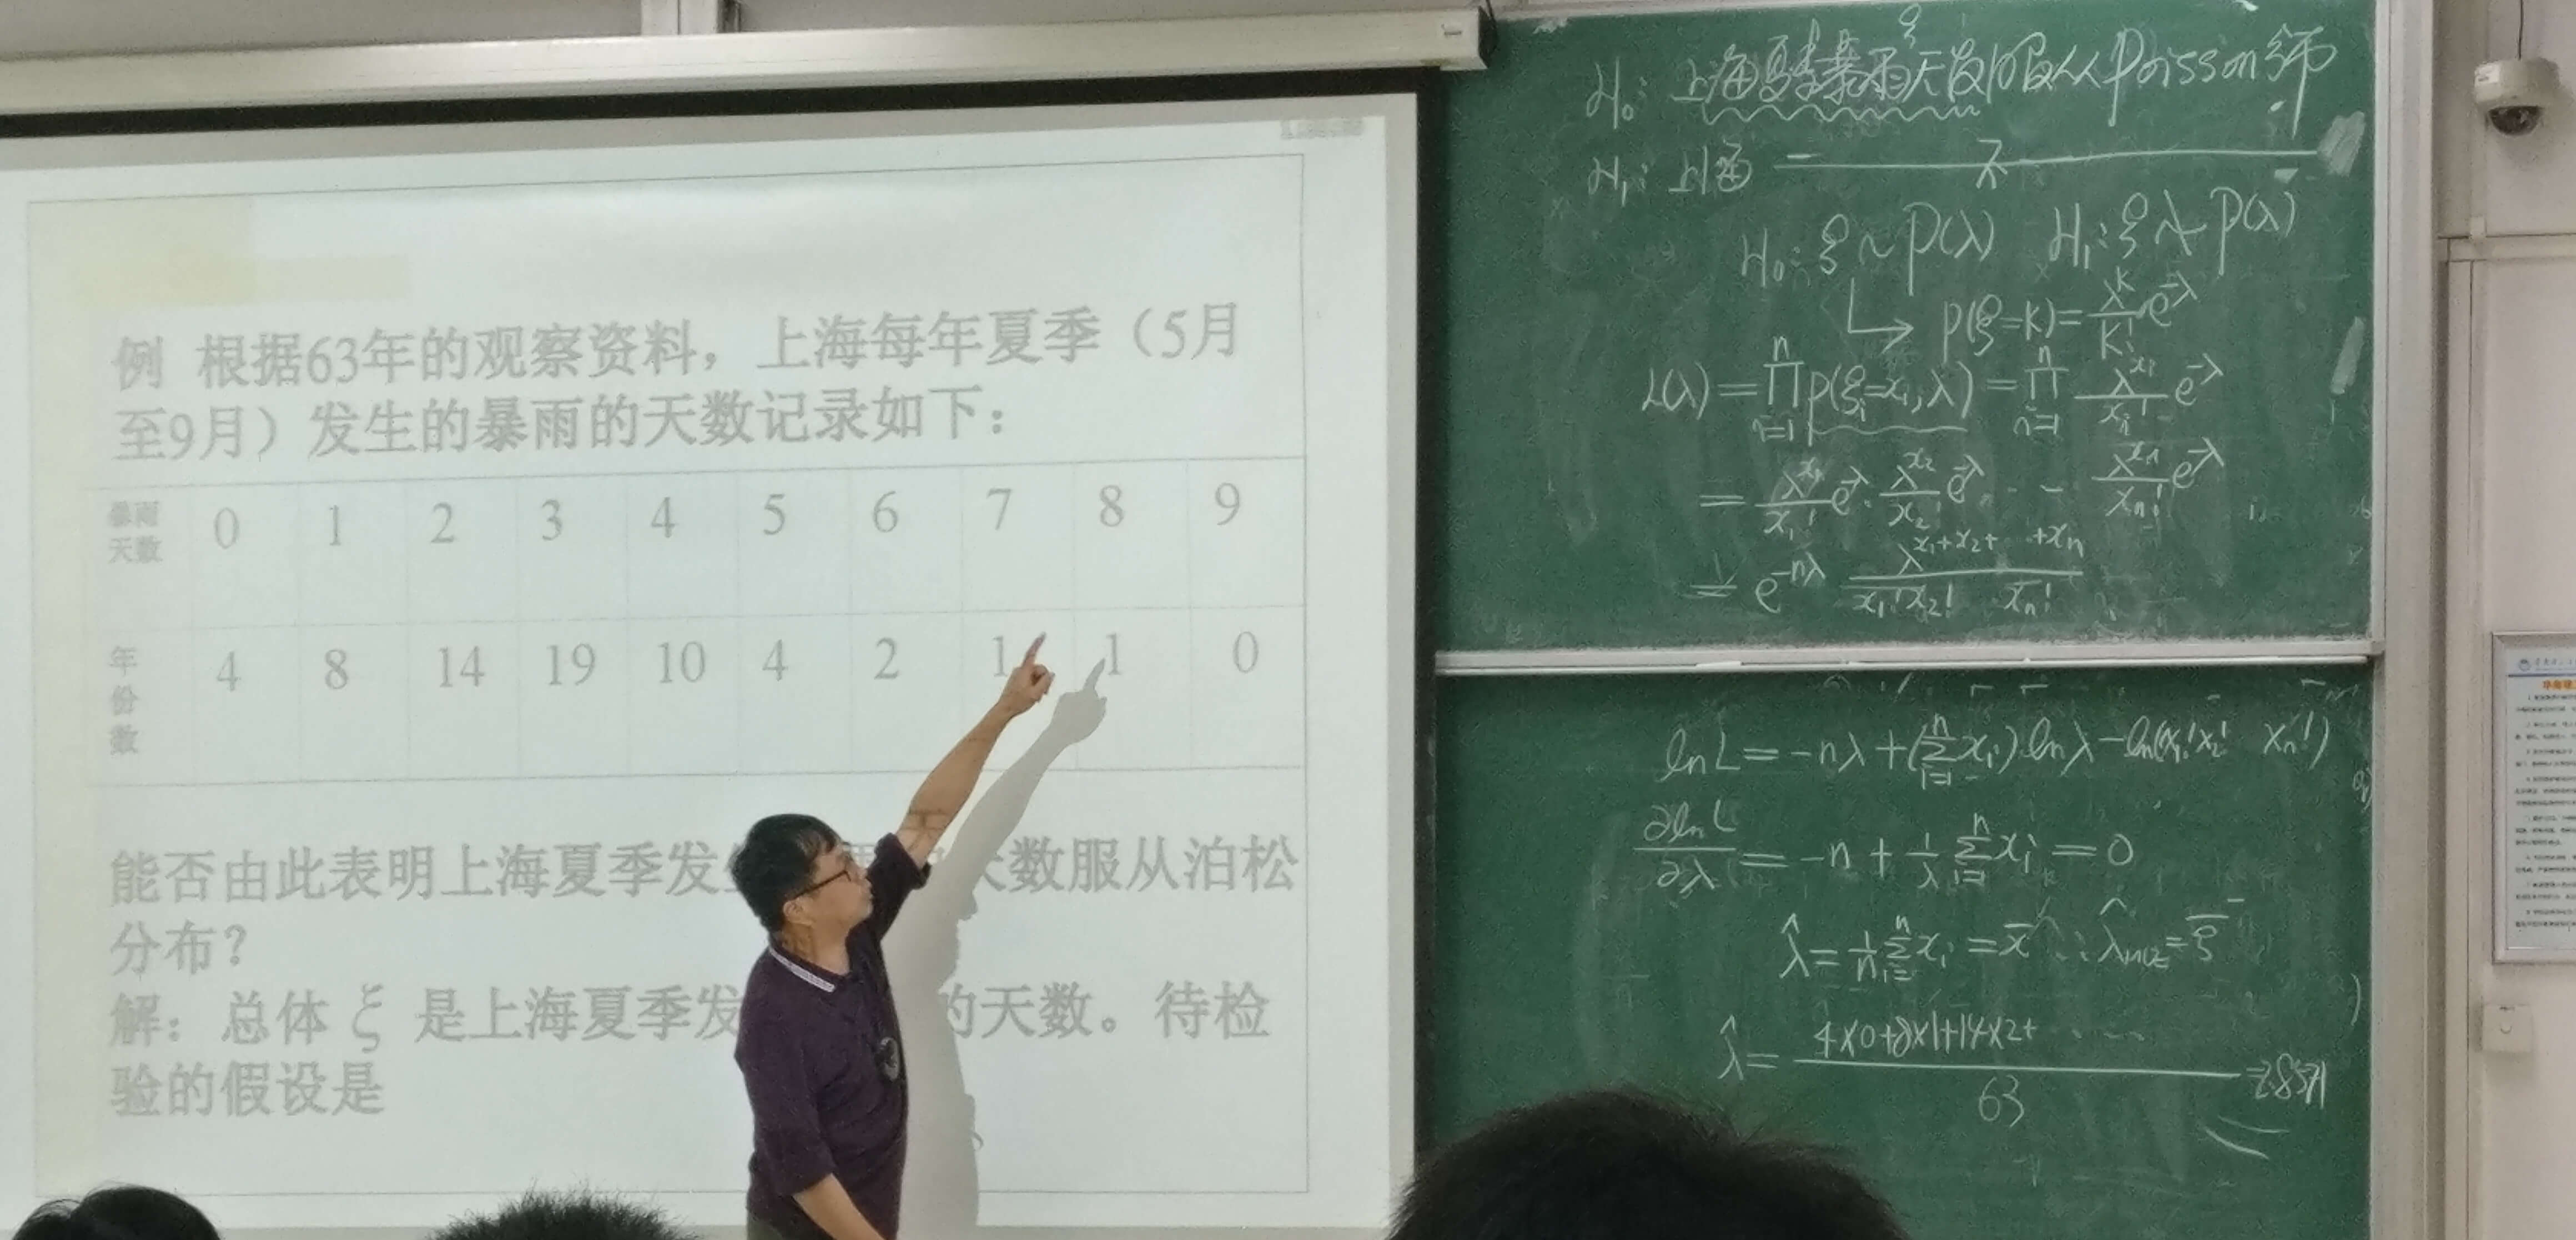 例 根据63年的观察资料，上海每年夏季（5月
至9月）发生的暴雨的天数记录如下：
暴雨天数 0 1 2 3 4 5 6 7 8 9
年份数 4 8 14 19 10 4 2 1 1 0
能否由此表明上海夏季发 天数服从泊松
分布？
解：总体 ξ 是上海夏季发 的天数。待检
验的假设是
H₀: 上海夏季暴雨天数ξ服从Poisson分布
H₁: 上海 — 不 —
H₀: ξ ~ P(λ) H₁: ξ ≁ P(λ)
↳ P(ξ=K) = λ^K/K! e^{-λ}
L(λ) = ∏_{i=1}^{n} P(ξ_i=x_i, λ) = ∏_{i=1}^{n} λ^{x_i}/x_i! e^{-λ}
= λ^{x₁}/x₁! e^{-λ} · λ^{x₂}/x₂! e^{-λ} · · · λ^{x_n}/x_n! e^{-λ}
= e^{-nλ} λ^{x₁+x₂+ +x_n}/(x₁! x₂! x_n!)
ln L = -nλ + (∑_{i=1}^{n} x_i) ln λ - ln(x₁! x₂! x_n!)
∂ln L/∂λ = -n + 1/λ ∑_{i=1}^{n} x_i = 0
λ̂ = 1/n ∑_{i=1}^{n} x_i = x̄ ∴ λ̂_{MLE} = ξ̄
λ̂ = (4×0+8×1+14×2+ ……)/63 = 2.8571